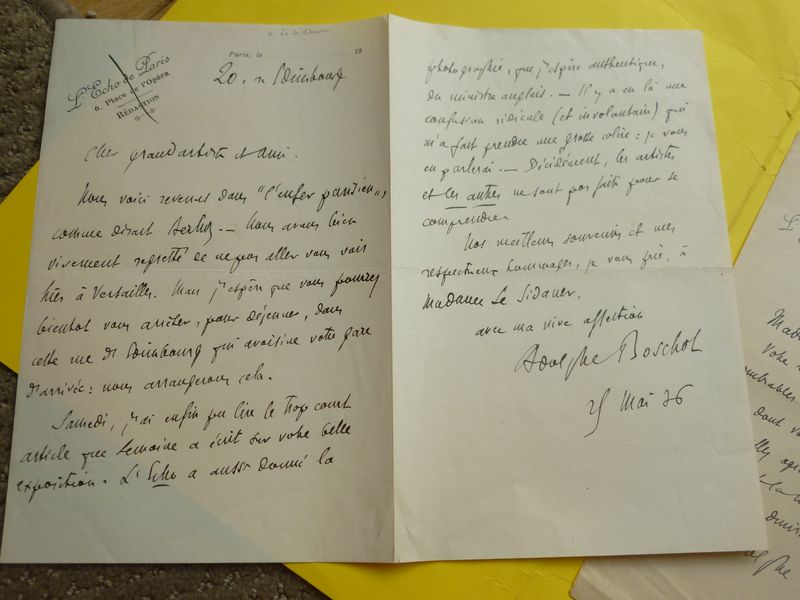 à Le Sidaner
L'Echo de Paris
6, Place de l'Opéra
RÉDACTION
Paris, le 19
20, r. d'Edimbourg
Cher grand artiste et ami.
Nous voici revenus dans "l'enfer parisien",
comme disait Berlioz. — Nous avons bien
vivement regretté de ne pas aller vous voir
hier à Versailles. Mais j'espère que vous pourrez
bientôt vous arrêter, pour déjeuner, dans
cette rue d'Edimbourg qui avoisine votre gare
d'arrivée : nous arrangerons cela.
Samedi, j'ai enfin pu lire le trop court
article que Lemoine a écrit sur votre belle
exposition. L'Echo a aussi donné la
photographie, que j'espère authentique,
du ministre anglais. — Il y a eu là une
confusion ridicule (et involontaire) qui
m'a fait prendre une grosse colère : je vous
en parlerai. — Décidément, les artistes
et les autres ne sont pas faits pour se
comprendre.
Nos meilleurs souvenirs et mes
respectueux hommages, je vous prie, à
Madame Le Sidaner,
avec ma vive affection
Adolphe Boschot
25 Mai 36
L'
Mad
votre
dont v